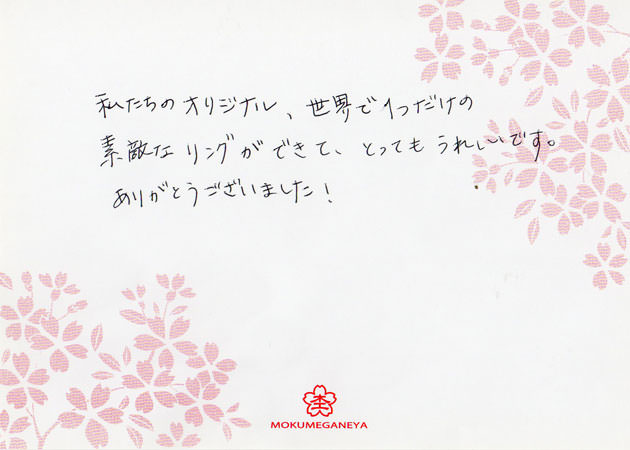 私たちのオリジナル、世界で1つだけの
素敵なリングができて、とってもうれしいです。
ありがとうございました!
MOKUMEGANEYA